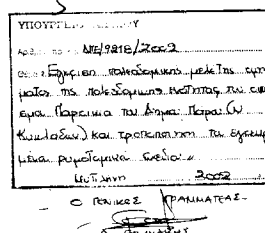 ΥΠΟΥΡΓΕΙΟ
ΔΠΕ/9218/2002
Έγκριση πολεοδομικής μελέτης τμή-
ματος της πολεοδομικής ενότητας του οικι-
Παροικία του Δήμου Πάρου (Ν.
Κυκλάδων) και τροποποίηση του εγκεκρι-
μένου ρυμοτομικού σχεδίου
2002
Ο ΓΕΝΙΚΟΣ ΓΡΑΜΜΑΤΕΑΣ